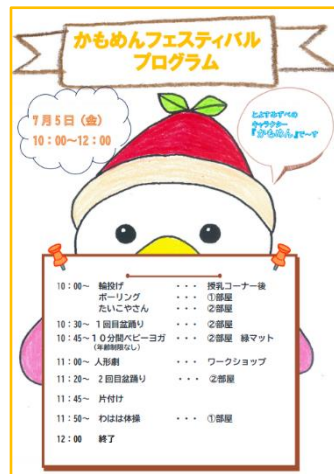 かもめんフェスティバル
プログラム
7月5日（金）
10：00～12：00
とよすみずべの
キャラクター
『かもめん』で～す
10：00～ 輪投げ ・・・ 授乳コーナー後
ボーリング ・・・ ①部屋
たいこやさん ・・・ ②部屋
10：30～ 1回目盆踊り ・・・ ②部屋
10：45～10分間ベビーヨガ ・・・ ②部屋 緑マット
（年齢制限なし）
11：00～ 人形劇 ・・・ ワークショップ
11：20～ 2回目盆踊り ・・・ ②部屋
11：45～ 片付け
11：50～ わはは体操 ・・・ ①部屋
12：00 終了